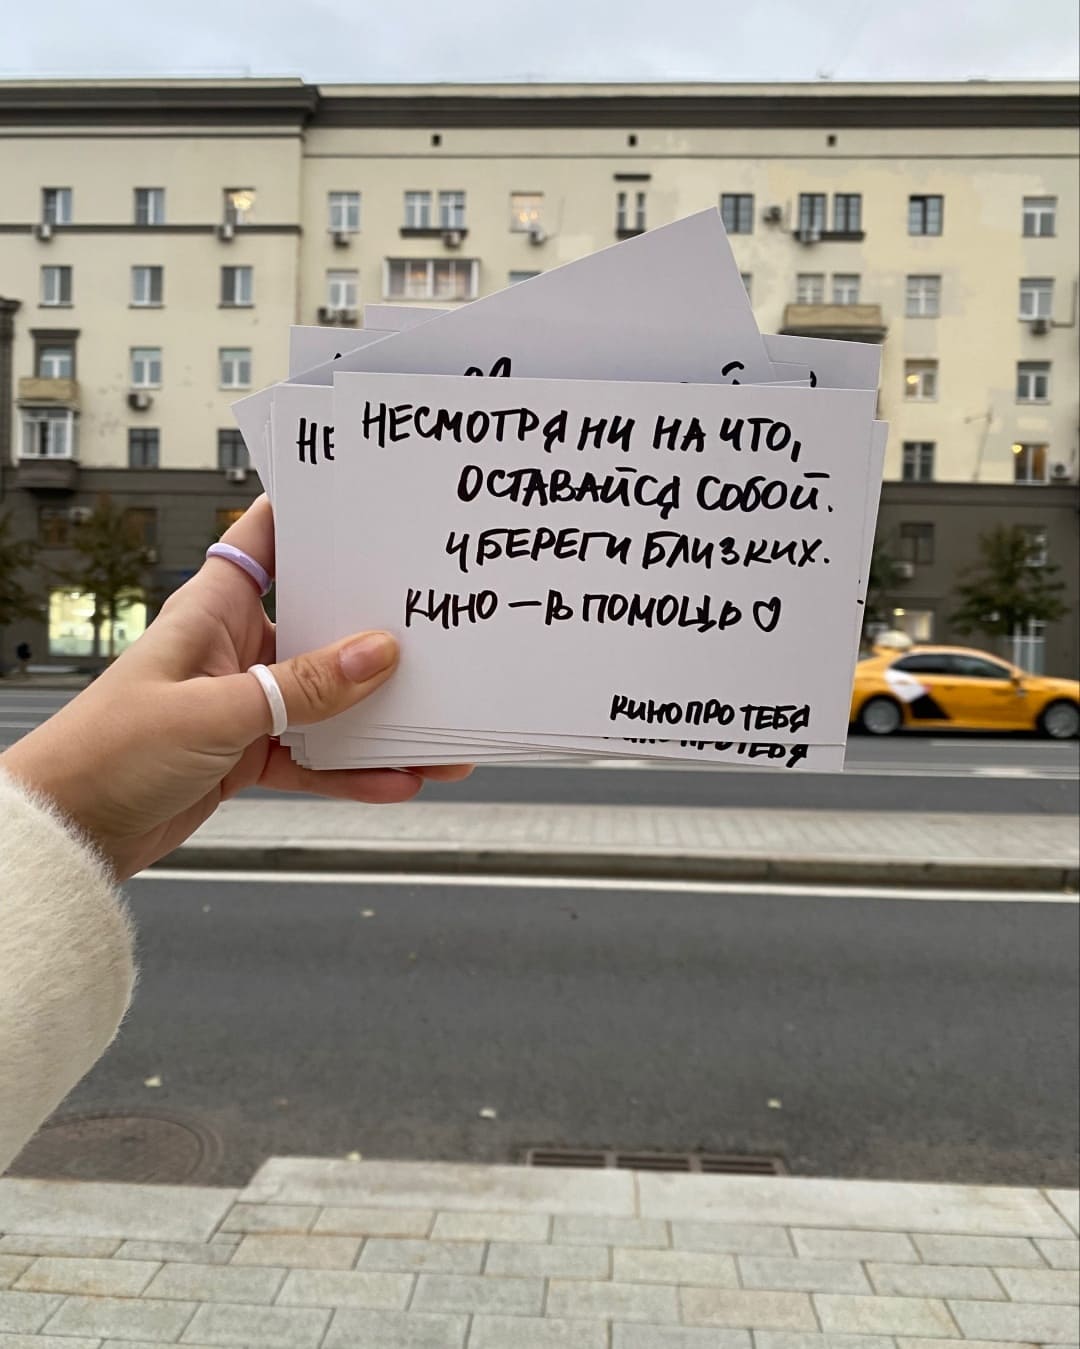 НЕСМОТРЯ НИ НА ЧТО,
ОСТАВАЙСЯ СОБОЙ.
И БЕРЕГИ БЛИЗКИХ.
КИНО — В ПОМОЩЬ ♡
КИНОПРОТЕБЯ
НЕ
КИНОПРОТЕБЯ